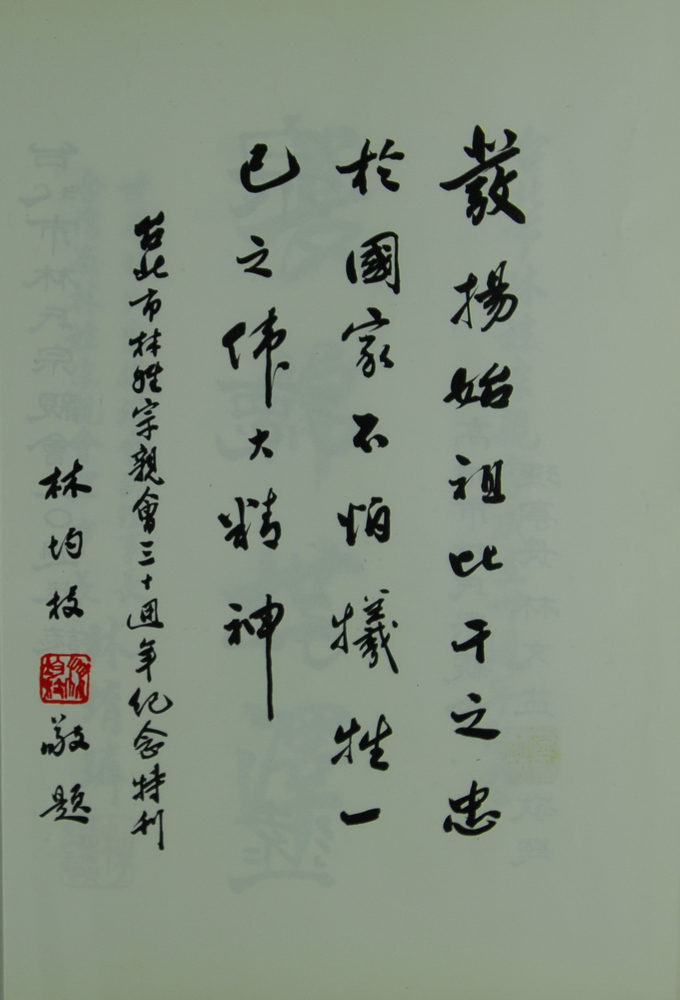 發揚始祖比干之忠
於國家不怕犧牲一
己之偉大精神
台北市林姓宗親會三十週年紀念特刊
林均枝 敬題